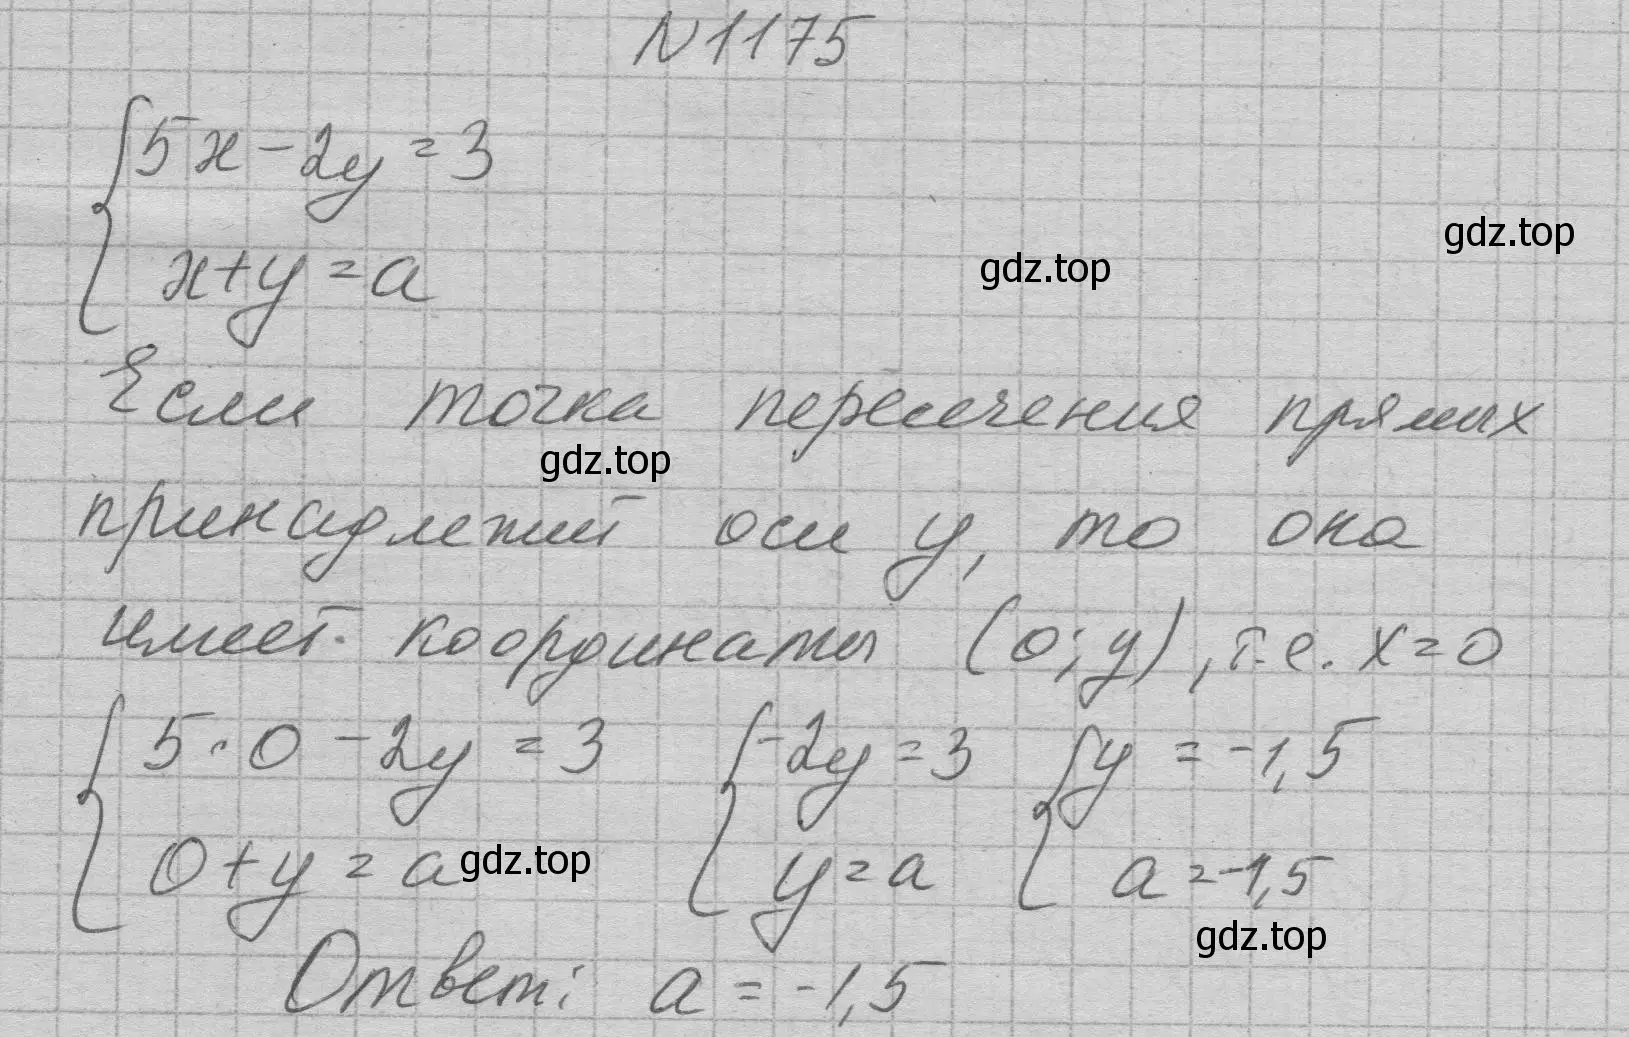 N1175
5x-2y=3
gdz.top
x+y=a
gdz.top
Если точка пересечения прямых
gdz.top
принадлежит оси y, то она
имеет координаты (0;y), т.е. x=0
5·0-2y=3 -2y=3 y=-1,5
0+y=a gdz.top y=a a=-1,5
gdz.top
Ответ: a=-1,5